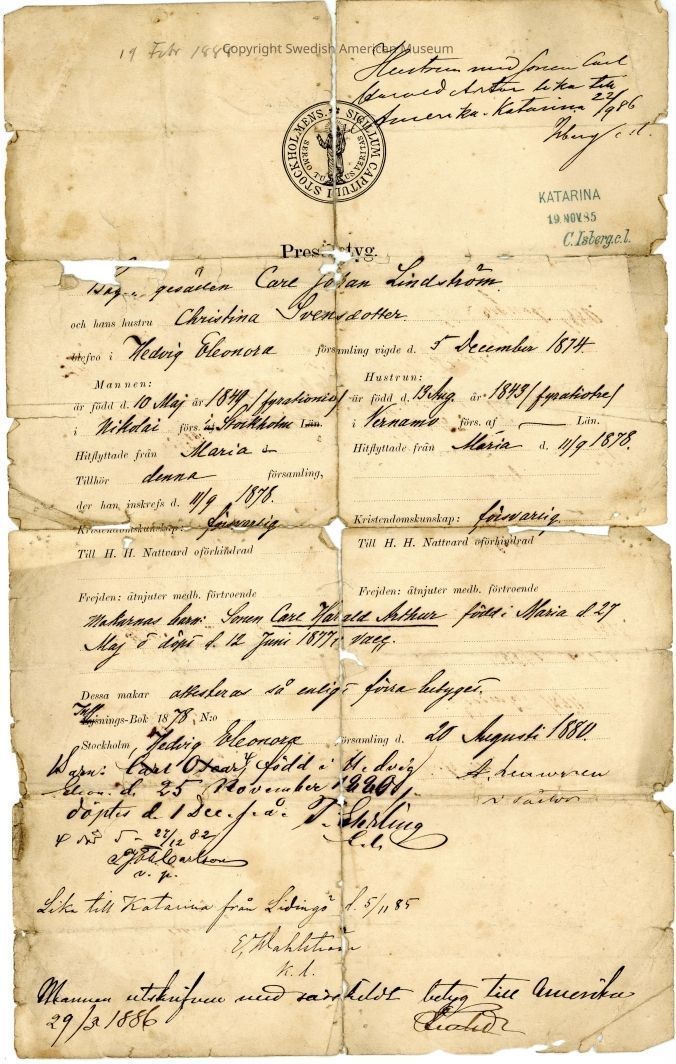 19 Febr 188
Copyright Swedish American Museum
Hustrun med sonen Carl
Harald Artur lika till
Amerika. Katarina 22/9 86
Isberg c. l.
SIGILLUM CAPITULI STOCKHOLMENS.
KATARINA
19. NOV. 85
C. Isberg. c. l.
Pres tyg.
gesällen Carl Johan Lindström
och hans hustru Christina Svensdotter
blefvo i Hedvig Eleonora församling vigde d. 5 December 1874.
Mannen:
är född d. 10 Maj år 1849 (fyrationio)
i Nikolai förs. i Stockholm Län.
Hitflyttade från Maria
Tillhör denna församling,
der han inskrefs d. 11/9 1878.
Kristendomskunskap: försvarlig
Till H. H. Nattvard oförhindrad
Frejden: åtnjuter medb. förtroende
Hustrun:
är född d. 13 Aug. år 1843 (fyratiotre)
i Vernamo förs. af — Län.
Hitflyttade från Maria d. 11/9 1878.
Kristendomskunskap: försvarlig.
Till H. H. Nattvard oförhindrad
Frejden: åtnjuter medb. förtroende
Makarnas barn: Sonen Carl Harald Arthur född i Maria d. 27
Maj o döpt d. 12 Juni 1877, vacc.
Dessa makar attesteras så enligt förra betyget.
Inflyttnings-Bok 1878 N:o
Stockholm, Hedvig Eleonora församling d. 20 Augusti 1880.
Barn: Carl Oscar, född i Hedvig
Eleon. d. 25 November 1880,
döptes d. 1 Dec. s. å. T. Sterling
c. l.
27/12 82
Carlson
v. p.
Lika till Katarina från Lidingö d. 5/11 85
E. Wahlström
k. l.
Mannen utskrifven med särskildt betyg till Amerika
29/3 1886